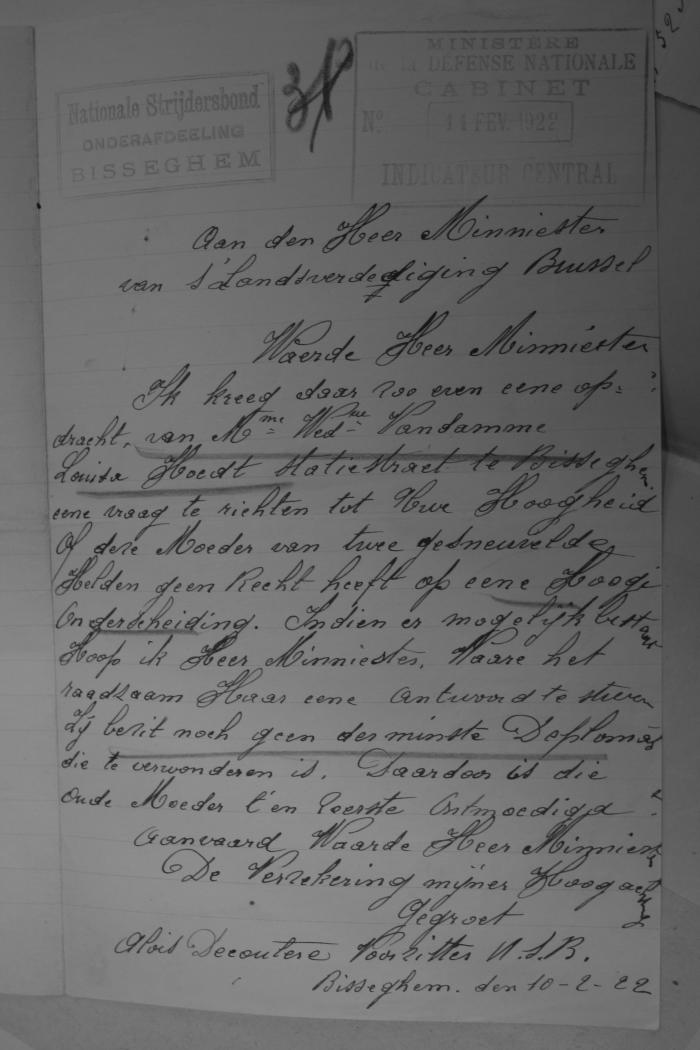 Nationale Strijdersbond
ONDERAFDEELING
BISSEGHEM
MINISTÈRE
de la DÉFENSE NATIONALE
CABINET
N° 11 FEV. 1922
INDICATEUR CENTRAL
Aan den Heer Minniester
van s'Landsverdediging Brussel
Waerde Heer Minniester
Ik kreeg daar zoo even eene op=
dracht, van Mme Wed-ue Vandamme
Louisa Hoedt statiestraet te Bisseghem
eene vraag te richten tot Uwe Hoogheid
Of deze Moeder van twee gesneuvelde
Helden geen Recht heeft op eene Hooge
Onderscheiding. Indien er mogelijk bestaat
Hoop ik Heer Minniester, Waare het
raadzaam Haar eene antwoord te sturen
Zij bezit noch geen der minste Deplomas
die te verwonderen is. Daardoor is die
oude Moeder t'en Zeerste Ontmoedigd
Aanvaard Waarde Heer Minniester
De Verzekering mijner Hoogachting
Gegroet
Alois Decoutere Voorzitter N.S.B.
Bisseghem. den 10-2-22